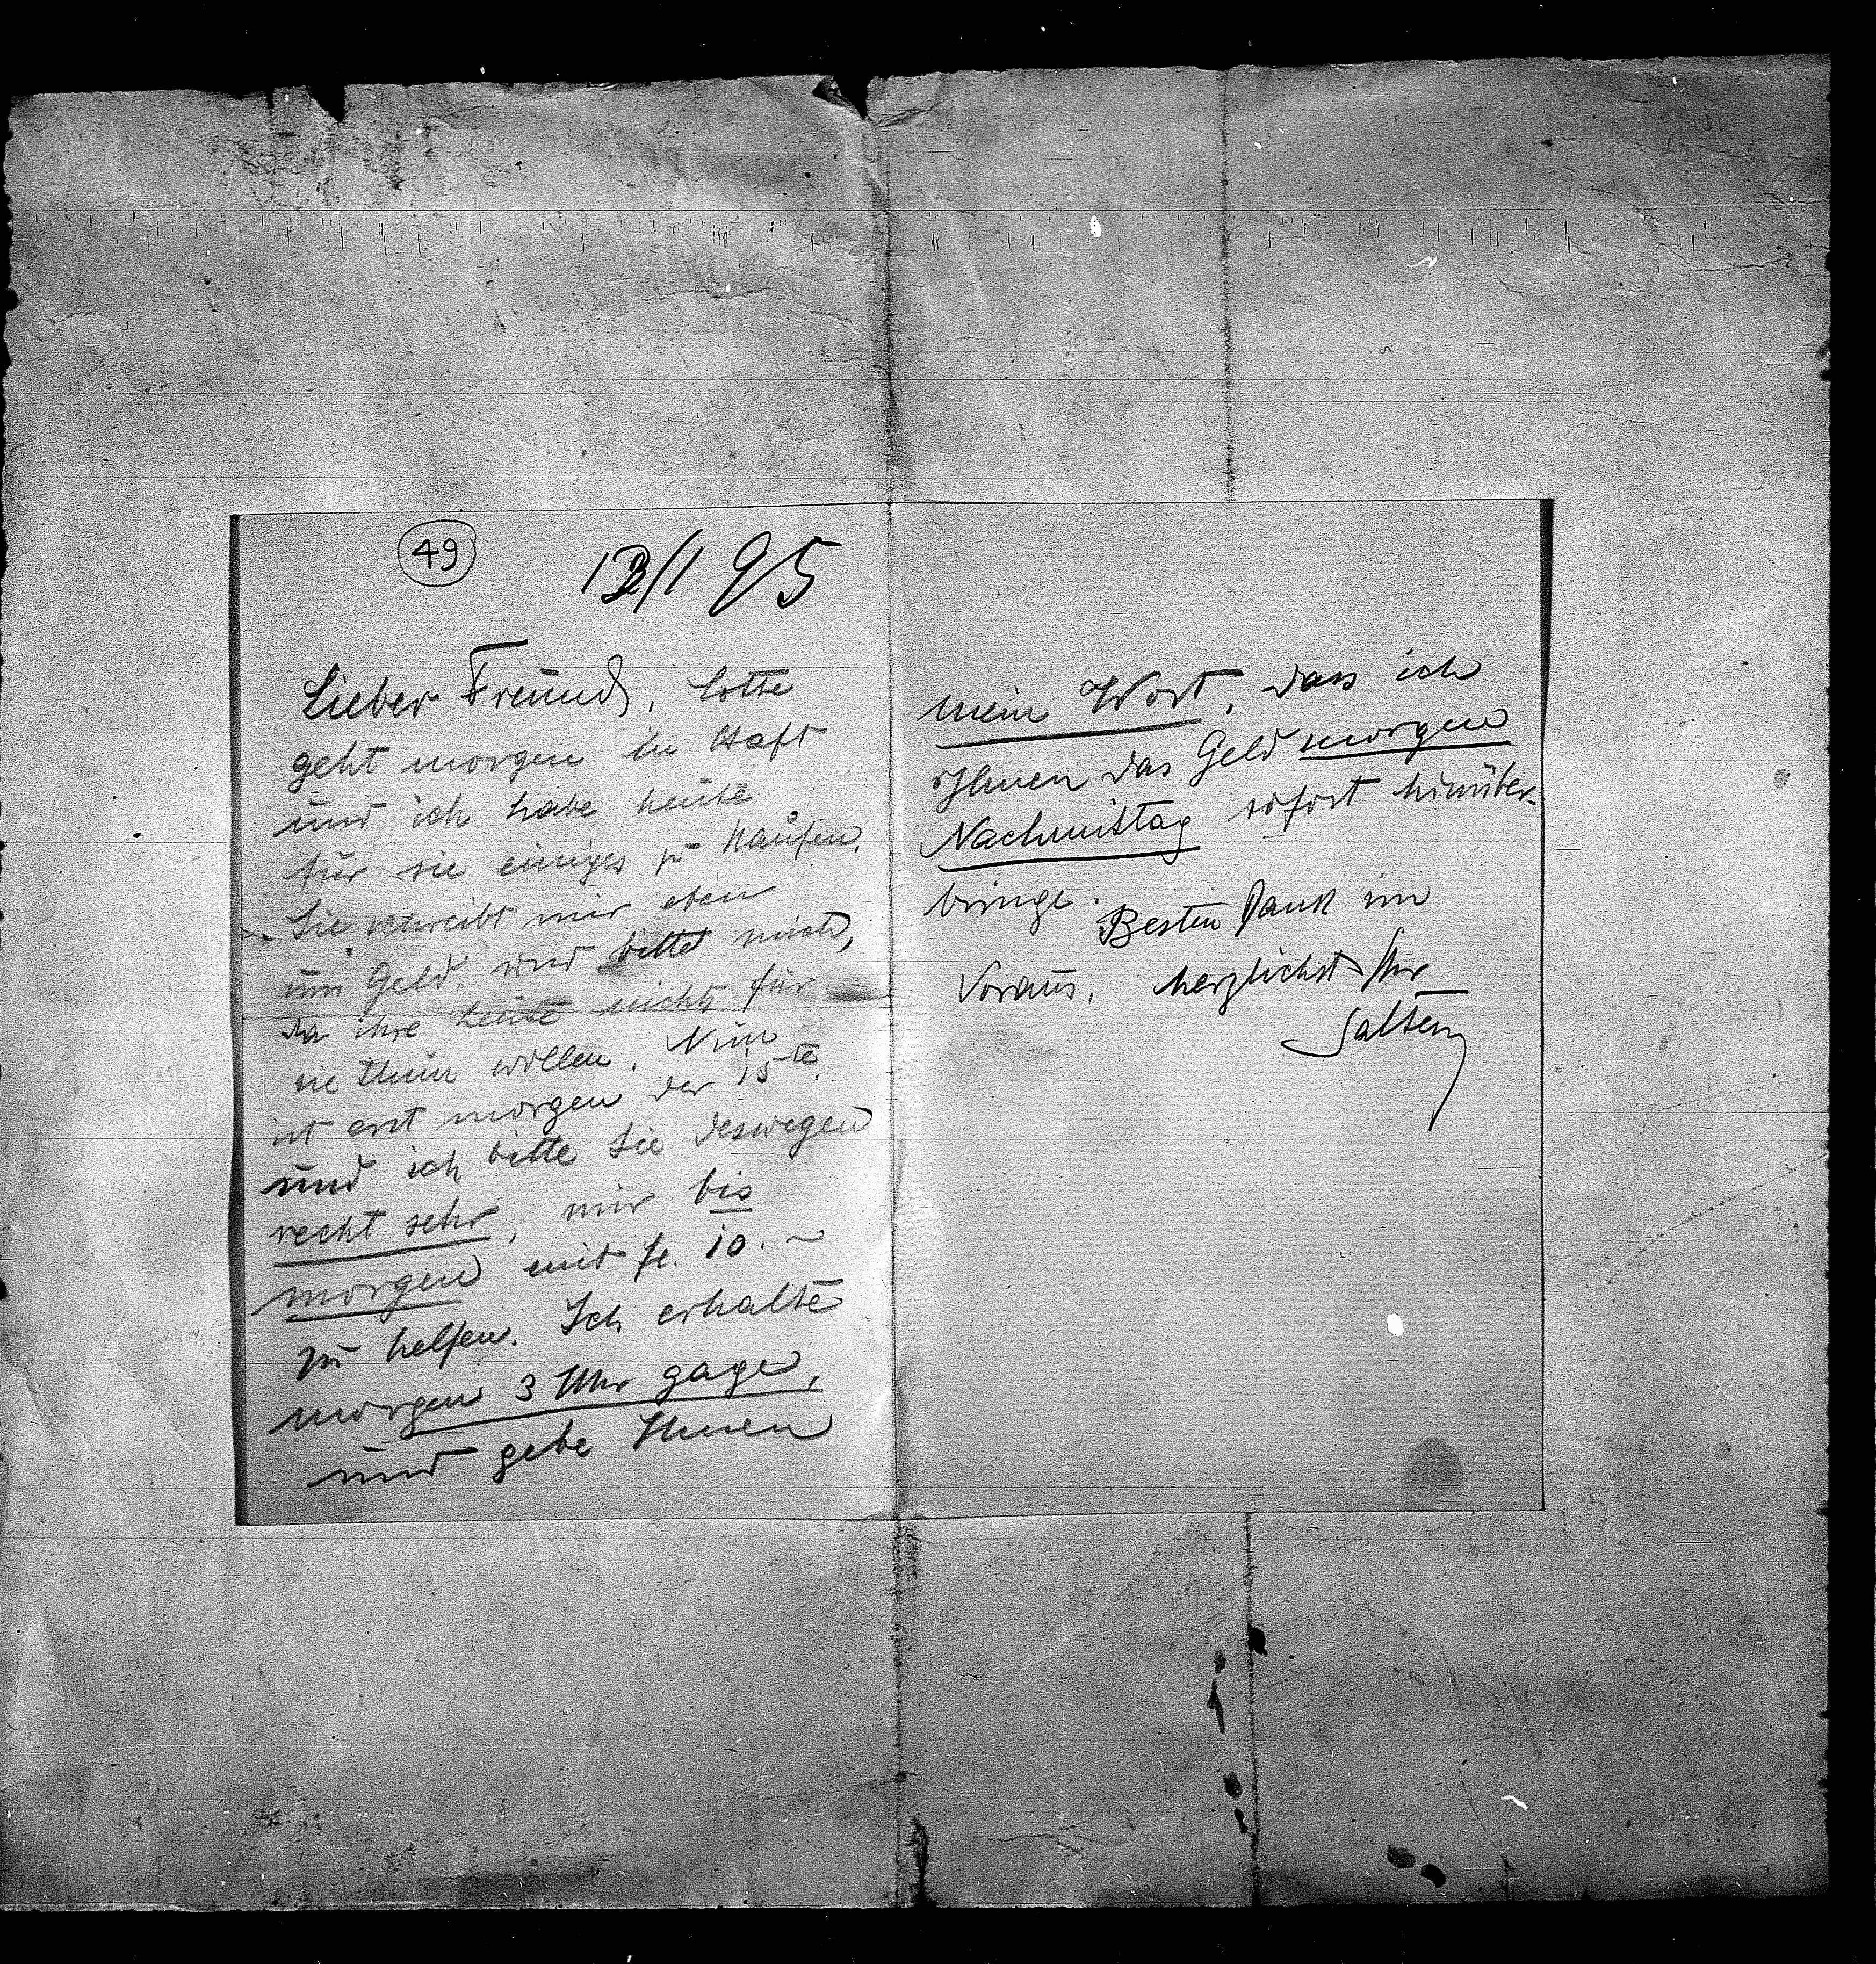 49
13/1 95
Lieber Freund, Lotte
geht morgen in Haft
und ich habe heute
für sie einiges zu kaufen.
Sie schreibt mir eben
um Geld. und bittet mich,
da ihre Leute nichts für
sie thun wollen. Nun
ist erst morgen der 15te.
und ich bitte Sie deswegen
recht sehr, mir bis
morgen mit fl. 10.–
zu helfen. Ich erhalte
morgen 3 Uhr gage,
und gebe Ihnen
mein Wort, dass ich
Ihnen das Geld morgen
Nachmittag sofort hinüber-
bringe.
Besten Dank im
Voraus, herzlichst Ihr
Salten